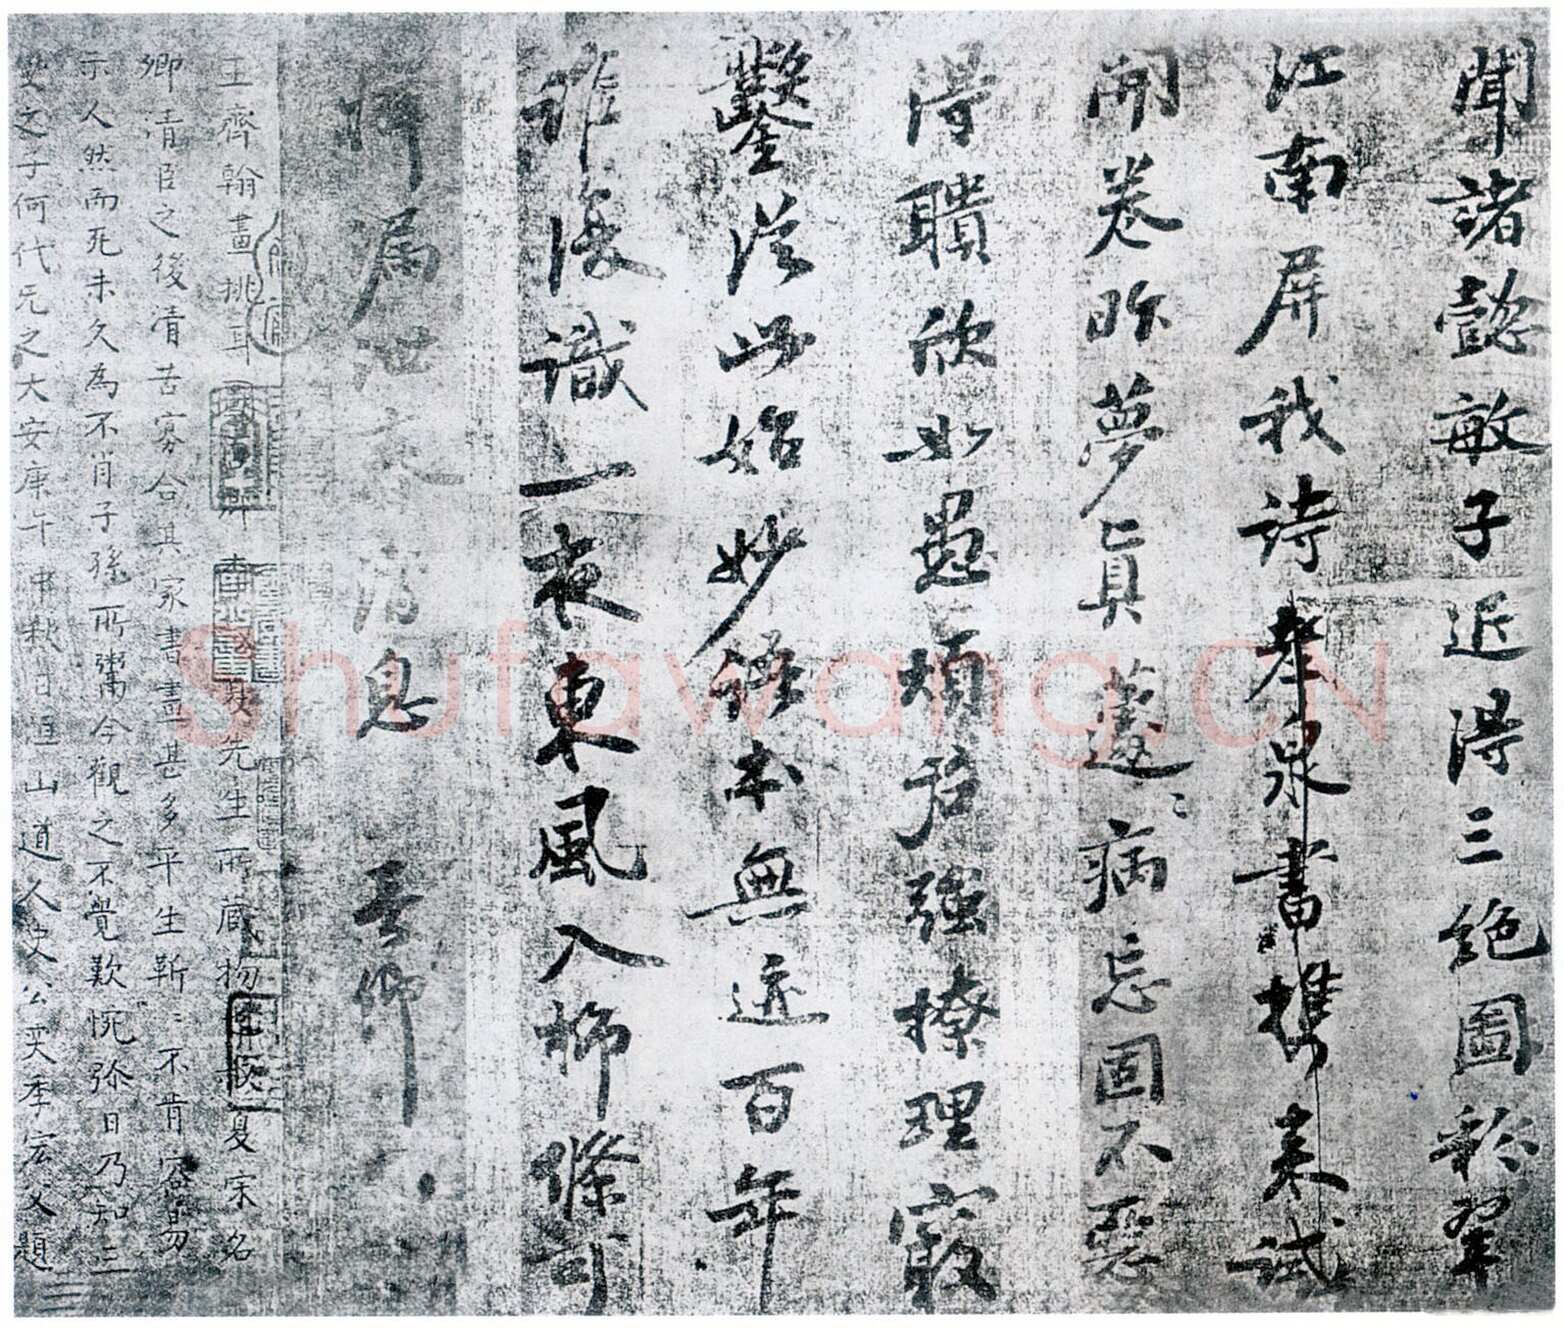 聞諸懿敏子近得三絕圖彩翠
江南屏我詩奉泉書携來試
開卷昨夢真蘧〻病忘固不惡
得聵欣如愚頑強撩理寂
鑿從此始妙語本無迹百年
誰復識一夜東風入柳條可
何為泄消息 晉卿
王齊翰畫挑耳 先生所藏物 夏宋名
卿清臣之後清苦寡合其家書畫甚多平生靳〻不肯容易
示人然而死未久為不肖子孫所鬻今觀之不覺歎惋弥日乃知三
之子何代无之大安庚午中秋日恒山道人史公奕季宏父題
Shufawang.CN